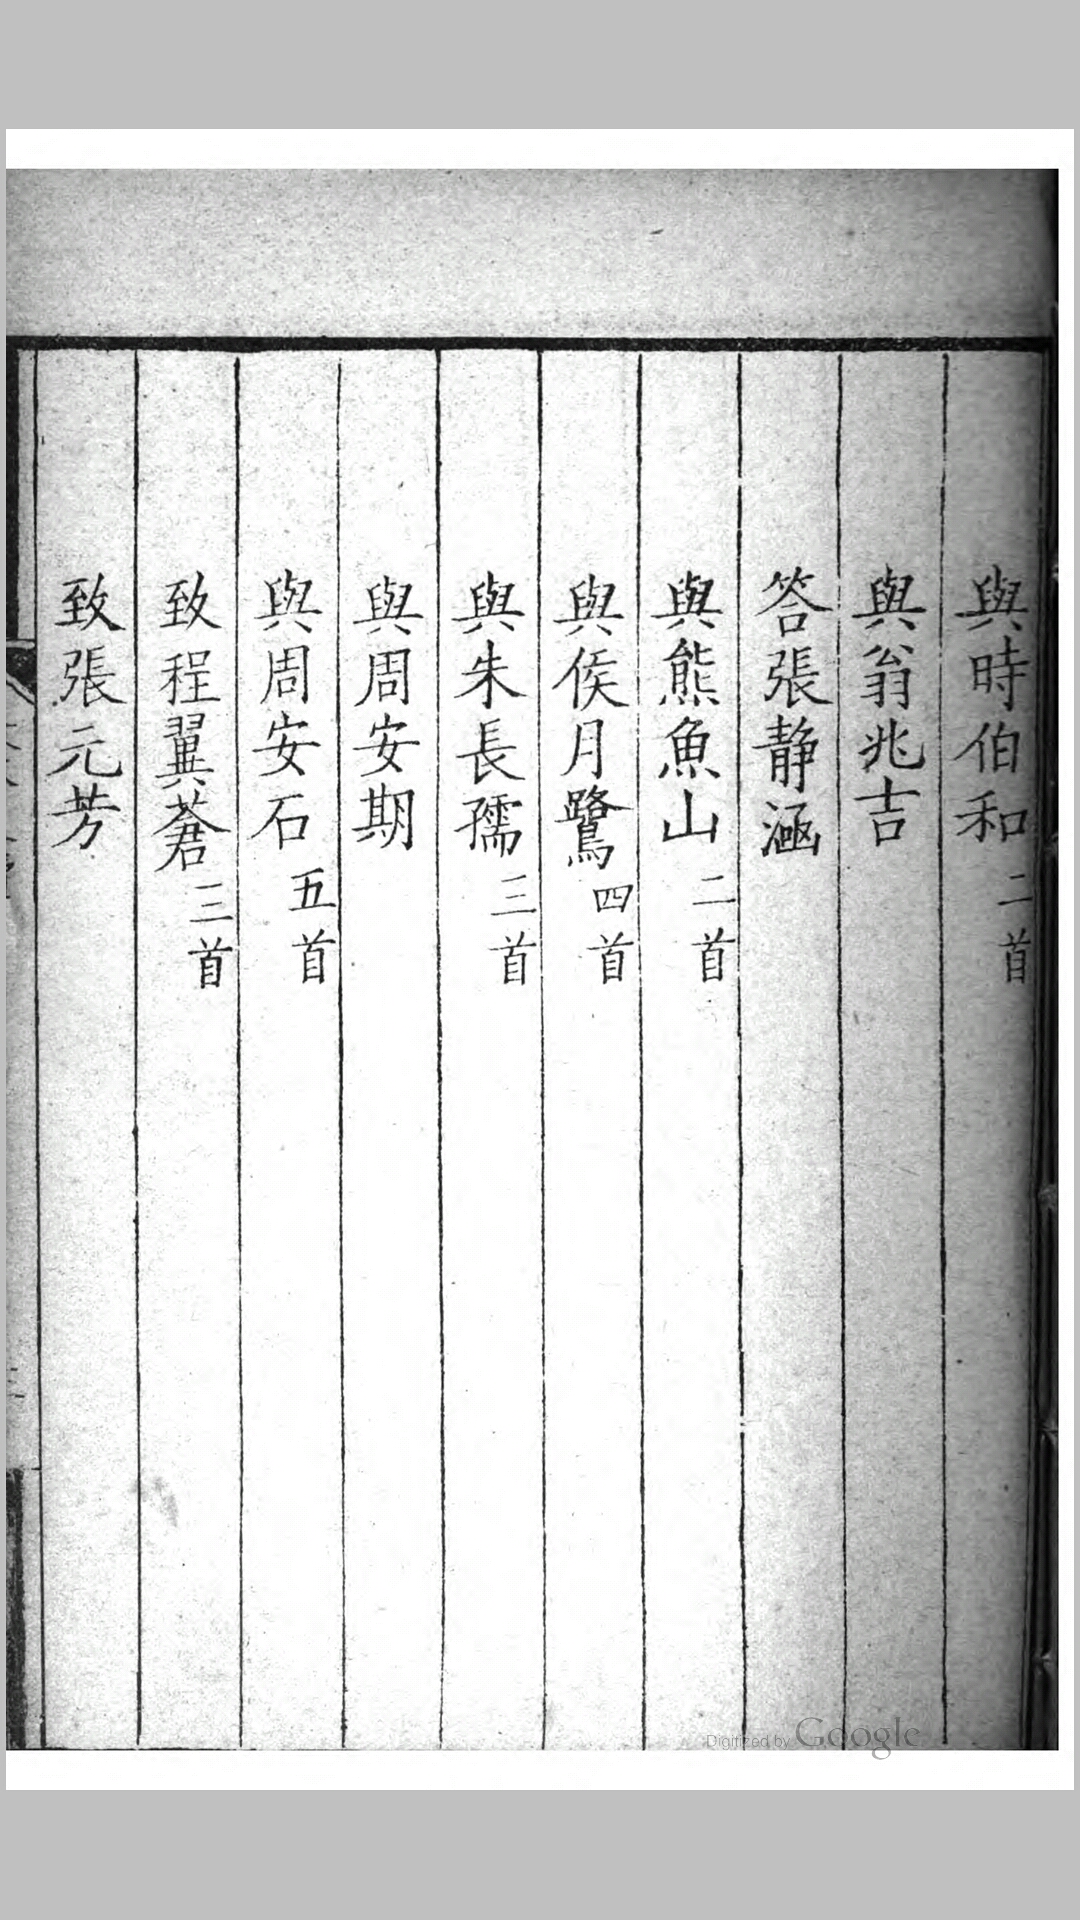 與時伯和二首
與翁兆吉
答張靜涵
與熊魚山二首
與侯月鷺四首
與朱長孺三首
與周安期
與周安石五首
致程翼蒼三首
致張元芳
Digitized by Google